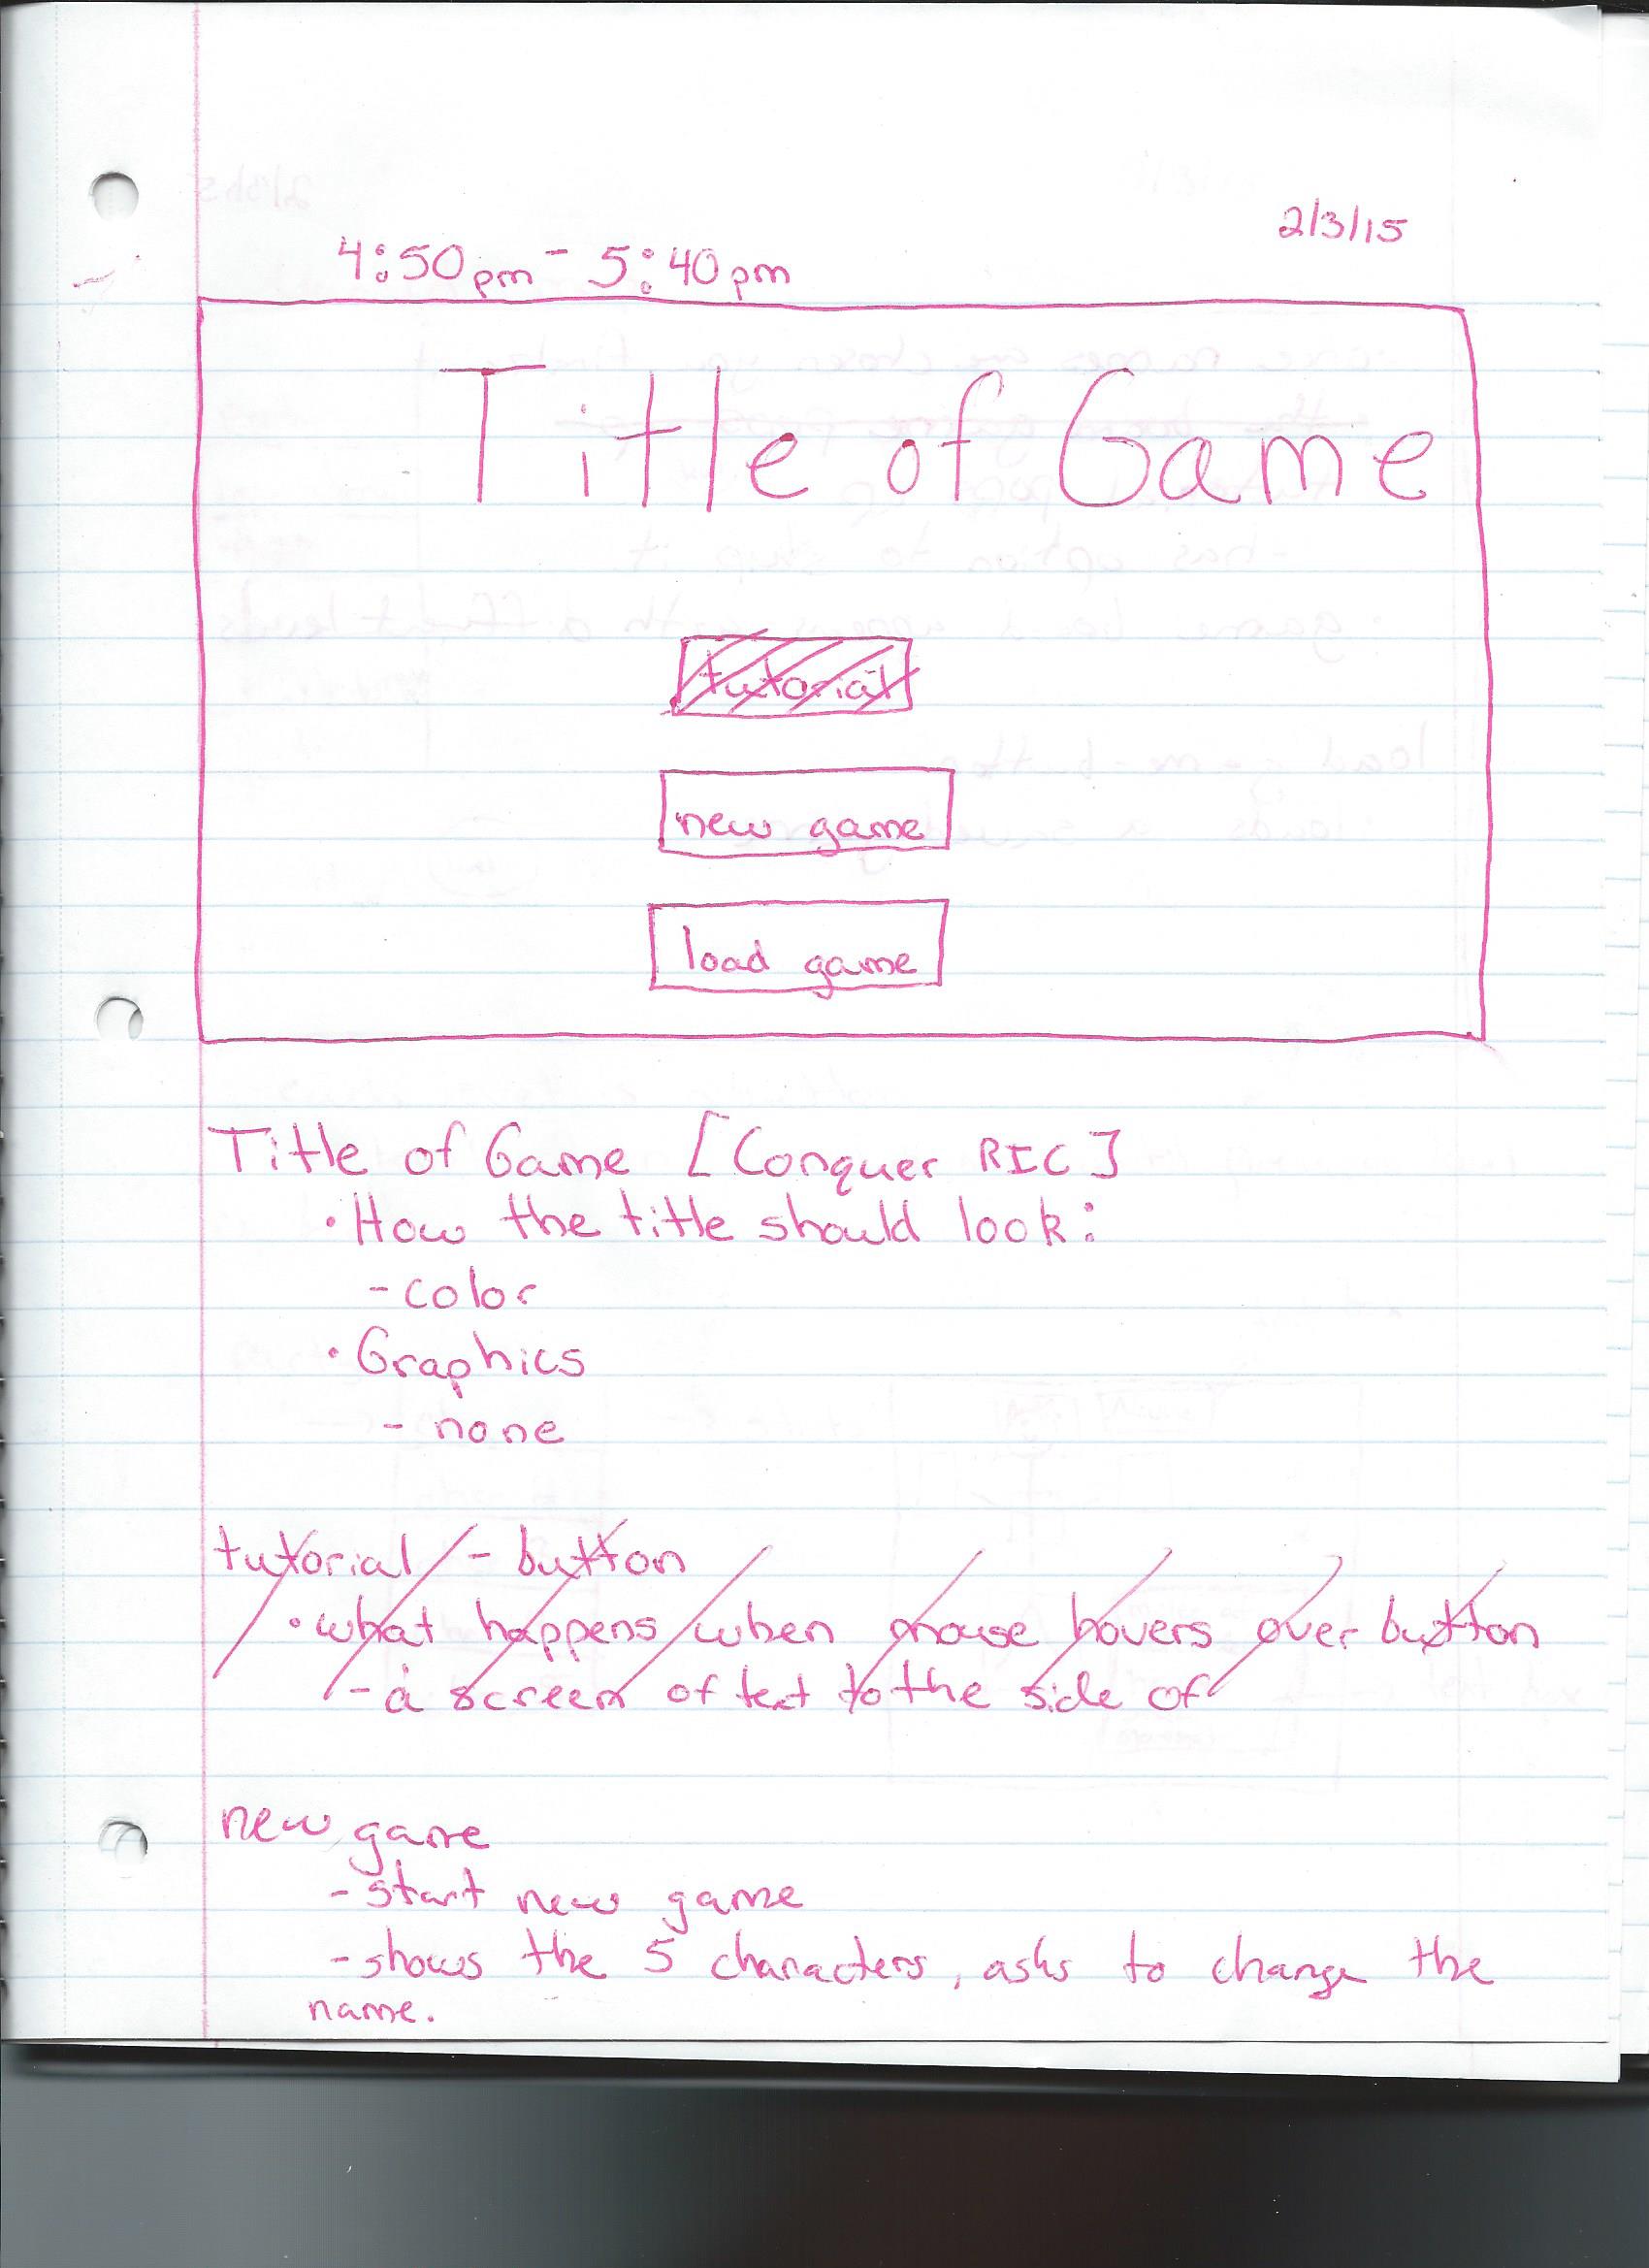 2/3/15
4:50pm - 5:40pm
Title of Game
tutorial
new game
load game
Title of Game [Conquer RIC]
• How the title should look:
- color
• Graphics
- none
tutorial - button
• what happens when mouse hovers over button
- a screen of text to the side of
new game
- start new game
- shows the 5 characters, asks to change the
name.